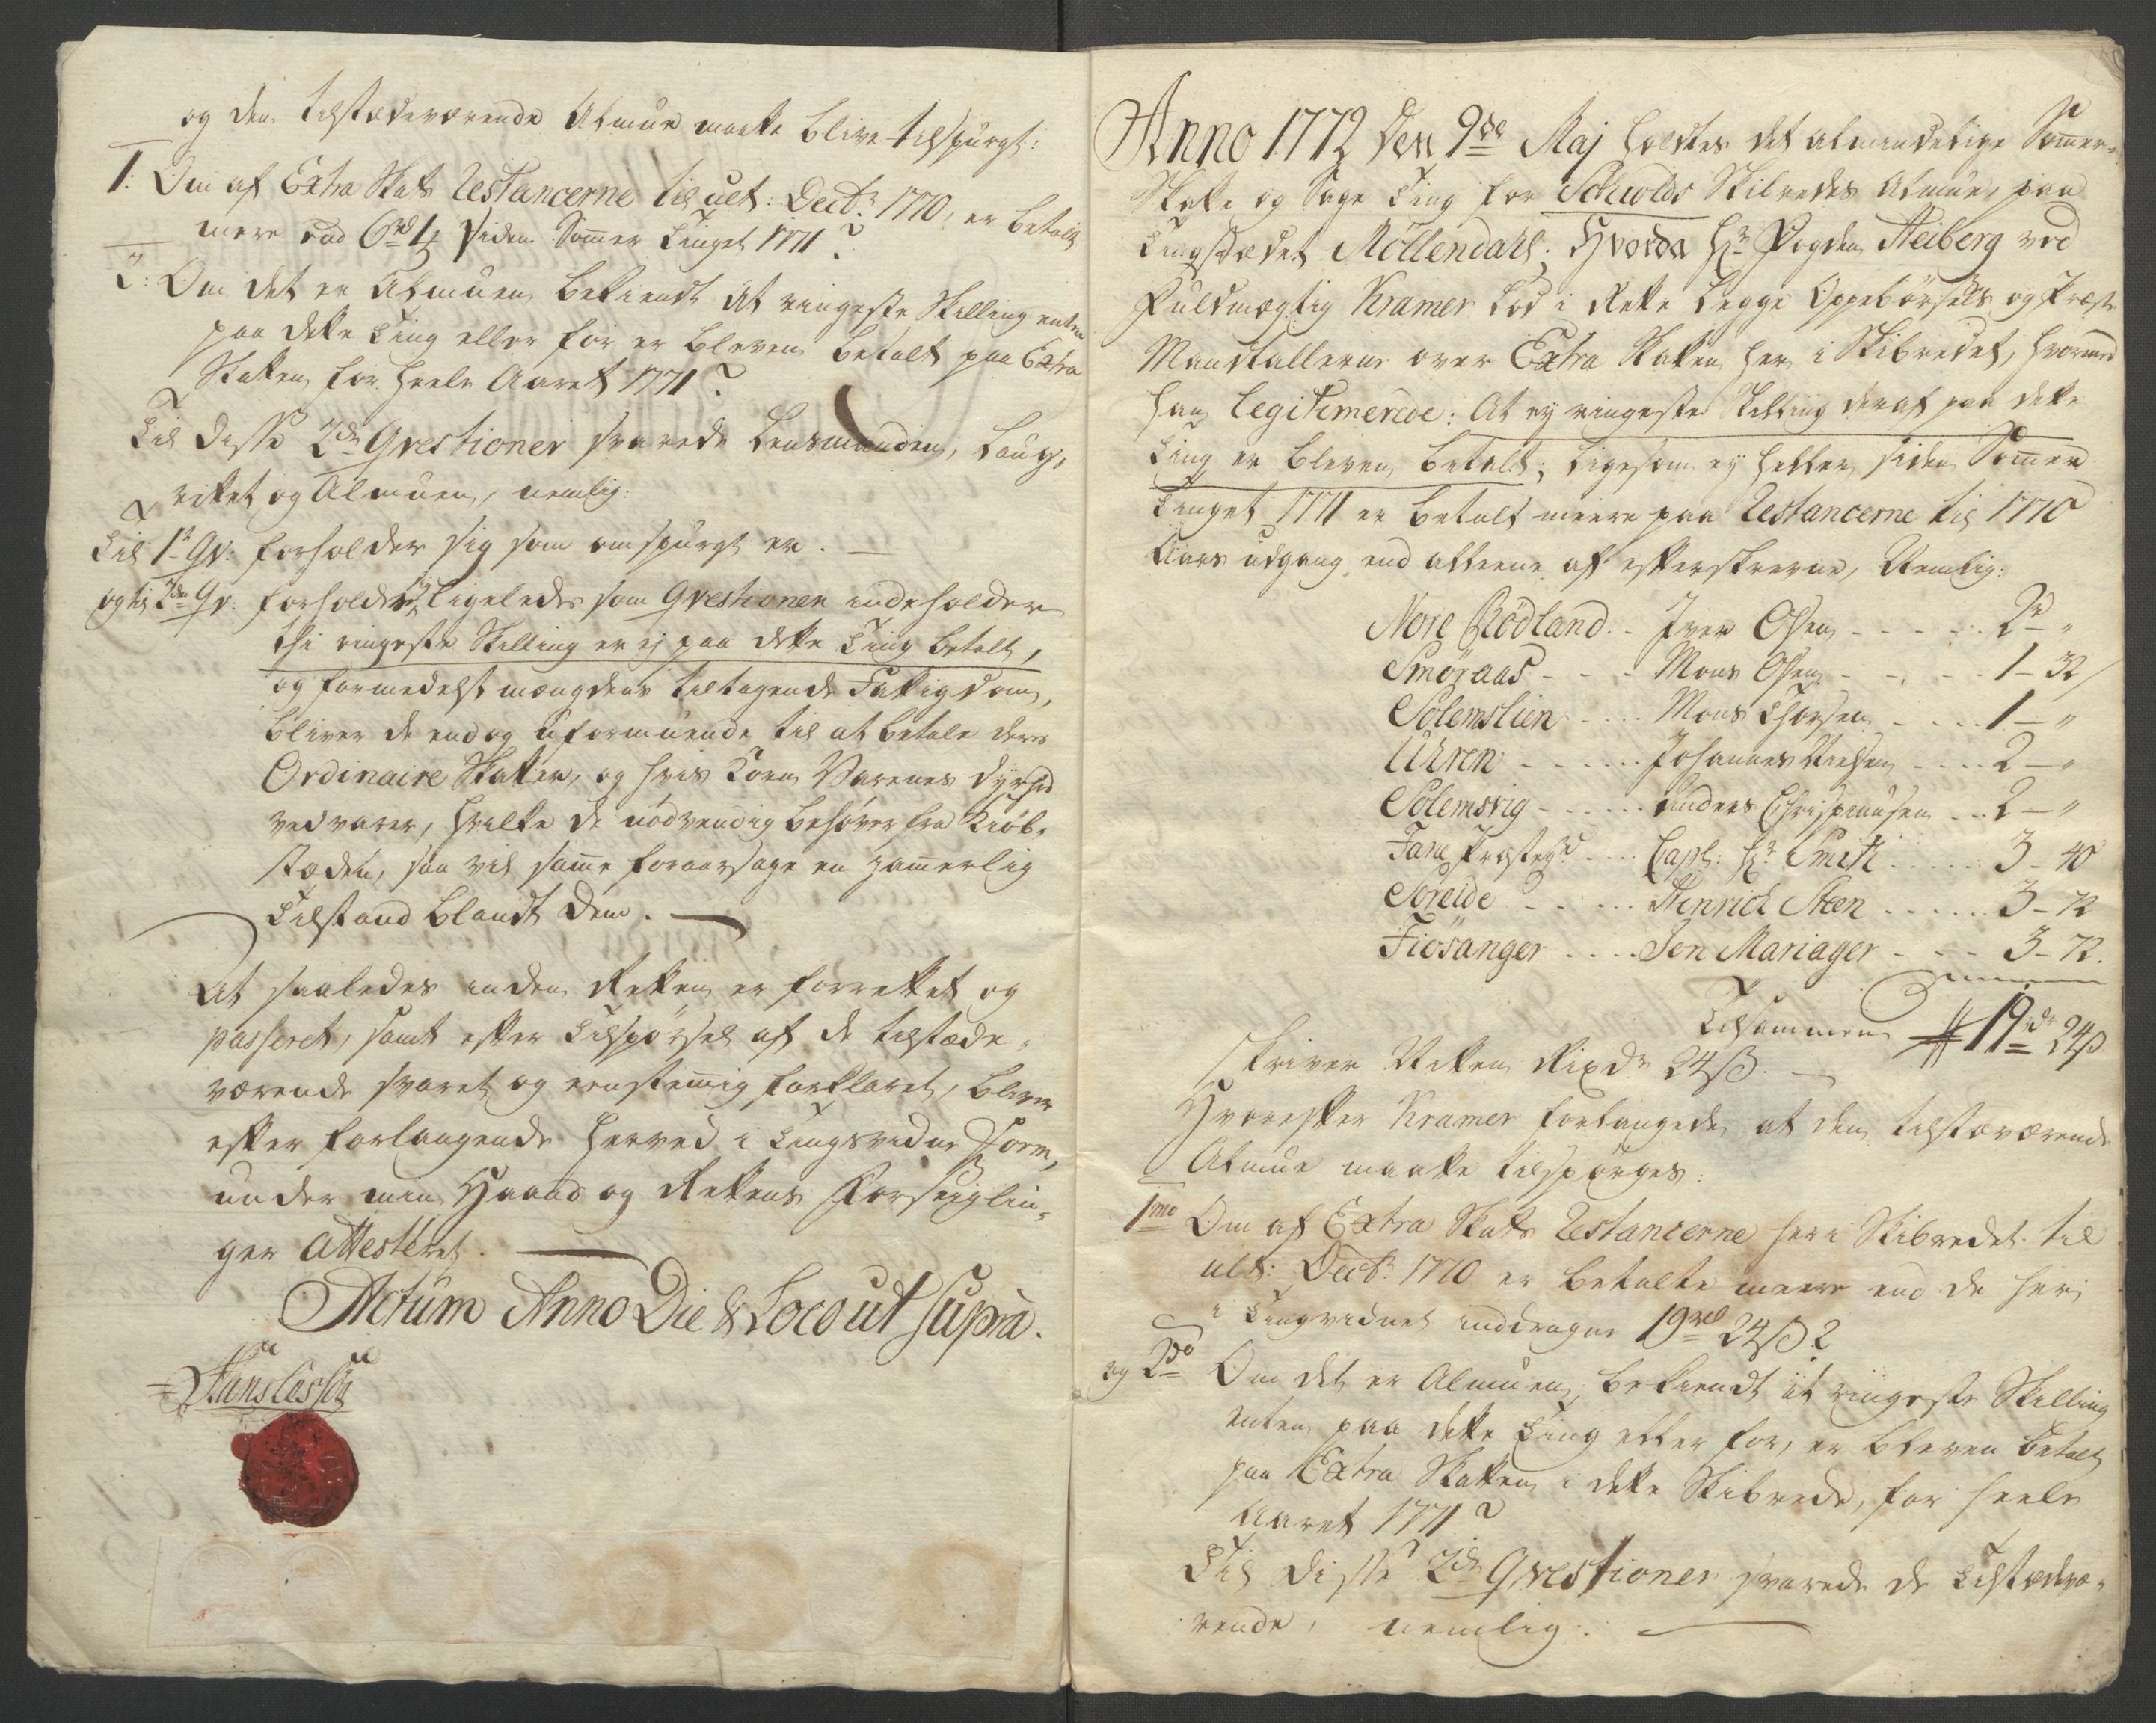 og den tilstædeværende Almue maatte blive tilspurgt:
1: Om af Extra Skats Restancerne til ult: Decbr 1770, er betalt
mere end 6rd 4ß siden Sommer Tinget 1771?
2: Om det er Almuen bekiendt at ringeste Skilling enten
paa dette Ting eller før er bleven betalt paa Extra
Skatten for heele Aaret 1771?
Til disse 2de Qvestioner svarede Lensmanden, Laug-
rettet og Almuen, nemlig:
Til 1te Qv: forholder sig som omspurgt er.
og til 2den Qv: forholder sig ligeledes som Qvestionen indeholder
thi ringeste Skilling er ej paa dette Ting betalt,
og formedelst mængdens tiltagende Fattigdom,
bliver de endog uformuende til at betale deres
Ordinaire Skatter, og hvis Korn Varenes Dyrhed
vedvarer, hvilke de nödvendig behöver fra Kiöb-
stæden, saa vil samme foraarsage en jammerlig
Tilstand blandt dem.
At saaledes inden Retten er forrettet og
passeret, samt efter Tilspörsel af de tilstæde-
værende svaret og eenstemmig forklaret, bliver
efter forlangende herved i Tingsvidne Form,
under min Haand og Rettens Forseiglin-
ger Attesteret.
Actum Anno Die & Loco ut supra.
Anno 1772 den 9de Maj holdtes det almindelige Sommer-
Skatte og Sage Ting for Schiolds Skibredes Almue, paa
Tingstædet Möllendahl; Hvorda Hr Fogden Heiberg ved
Fuldmægtig Kramer lod i Rette legge Oppebörsels og Extra
Mandtallerne over Extra Skatten her i Skibredet, hvormed
han legitimerede: At ey ringeste Skilling deraf paa dette
Ting er bleven betalt; ligesom ey heller siden Sommer
Tinget 1771 er betalt meere paa Restancerne til 1770
Aars udgang end alleene af efterskrevne, Nemlig:
Nore Rödland - Iver Olsen - - - 2rd "
Smöraas - - - Mons Olsen - - - 1 - 32
Solemslien - - - Mons Thorsen - - - 1 - "
Uhren - - - Johannes Nielsen - - - 2 - "
Solemsvig - - - Anders - - - 2 - "
Fane Præstegd - - - Capl: Hr Smitt - - - 3 - 40
Söreide - - - Henrich Steen - - - 3 - 72
Fiösanger - - - Jon Mariager - - - 3 - 72.
Tilsammen 19rd 24ß
skriver Nitten Rixdr 24ß.
Hvorefter Kramer forlangede at den tilstæværende
Almue maatte tilspörges:
1mo Om af Extra Skats Restancerne her i Skibredet til
ult: Decbr 1770 er betalte meere end de her
i Tingvidnet inddragne 19rd 24ß?
og 2do Om det er Almuen bekiendt at ringeste Skilling
enten paa dette Ting eller for, er bleven betalt
paa Extra Skatten i dette Skibrede, for heele
Aaret 1771?
Til disse 2de Qvestioner svarede de Tilstædevæ-
rende, nemlig: